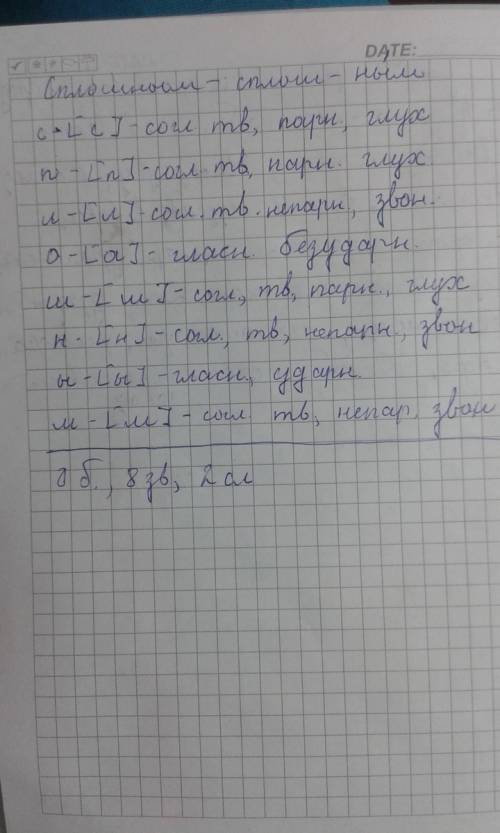 DATE:
Сплошным - сплош - ным
с - [с] - согл тв, парн, глух
п - [п] - согл тв, парн. глух
л - [л] - согл. тв. непарн, звон.
о - [а] - гласн. безударн.
ш - [ш] - согл, тв, парн., глух
н - [н] - согл., тв, непарн, звон
ы - [ы] - гласн., ударн.
м - [м] - согл тв, непар, звон
8 б., 8 зв, 2 сл